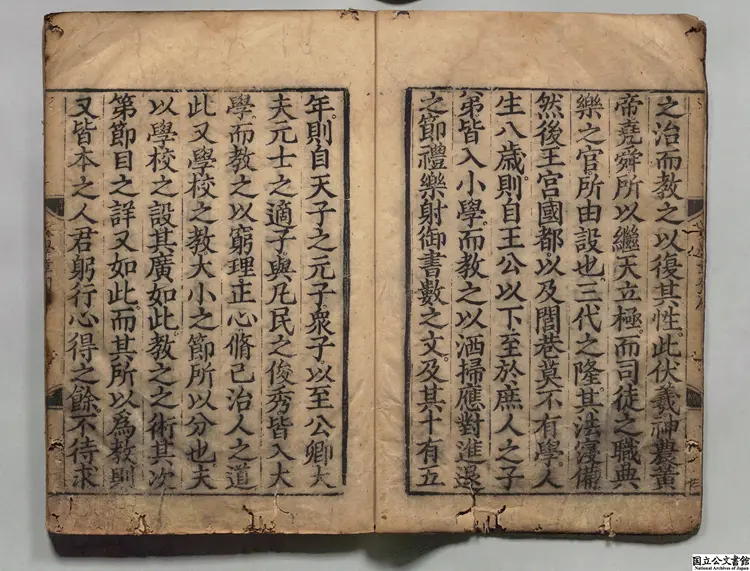 之治而教之以復其性。此伏羲神農黃
帝堯舜所以繼天立極。而司徒之職典
樂之官所由設也。三代之隆。其法寖備
然後王宮國都。以及閭巷莫不有學。人
生八歲則自王公以下至於庶人之子
弟皆入小學。而教之以洒掃應對進退
之節禮樂射御書數之文。及其十有五
年。則自天子之元子衆子以至公卿大
夫元士之適子。與凡民之俊秀皆入大
學。而教之以窮理正心脩己治人之道
此又學校之教大小之節所以分也。夫
以學校之設其廣如此。教之之術其次
第節目之詳又如此而其所以爲教則
又皆本之人君躬行心得之餘。不待求
国立公文書館
National Archives of Japan